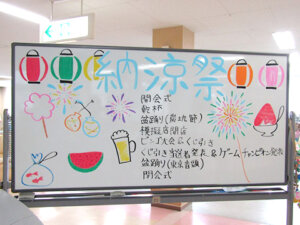 納涼祭
開会式
乾杯
盆踊り(炭坑節)
模擬店開店
ビンゴ大会&くじ引き
くじ引き当選者発表&ゲームチャンピオン発表
盆踊り(東京音頭)
閉会式